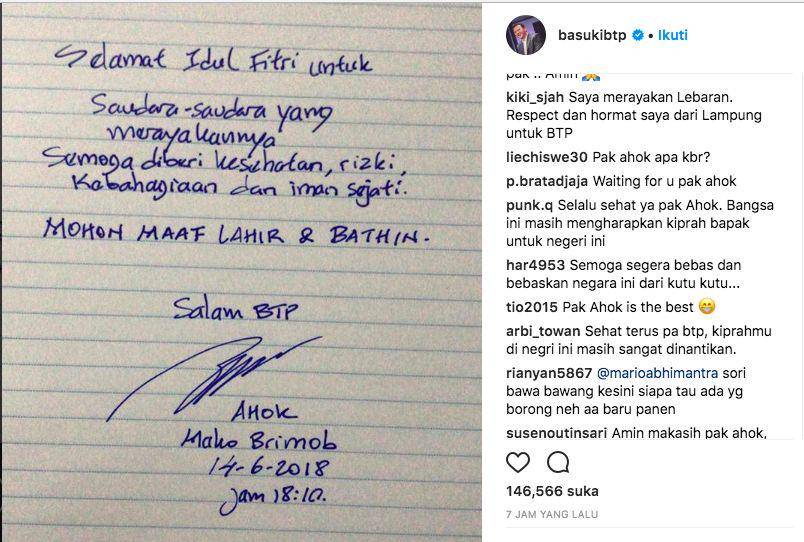 Selamat Idul Fitri untuk
Saudara-saudara yang
merayakannya
Semoga diberi kesehatan, rizki,
Kabahagiaan dan iman sejati.
MOHON MAAF LAHIR & BATHIN.
Salam BTP
AHOK
Mako Brimob
14-6-2018
Jam 18:10.
basukibtp • Ikuti
pak .. Amin 🙏
kiki_sjah Saya merayakan Lebaran.
Respect dan hormat saya dari Lampung
untuk BTP
liechiswe30 Pak ahok apa kbr?
p.bratadjaja Waiting for u pak ahok
punk.q Selalu sehat ya pak Ahok. Bangsa
ini masih mengharapkan kiprah bapak
untuk negeri ini
har4953 Semoga segera bebas dan
bebaskan negara ini dari kutu kutu...
tio2015 Pak Ahok is the best 😁
arbi_towan Sehat terus pa btp, kiprahmu
di negri ini masih sangat dinantikan.
rianyan5867 @marioabhimantra sori
bawa bawang kesini siapa tau ada yg
borong neh aa baru panen
susenoutinsari Amin makasih pak ahok,
146,566 suka
7 JAM YANG LALU